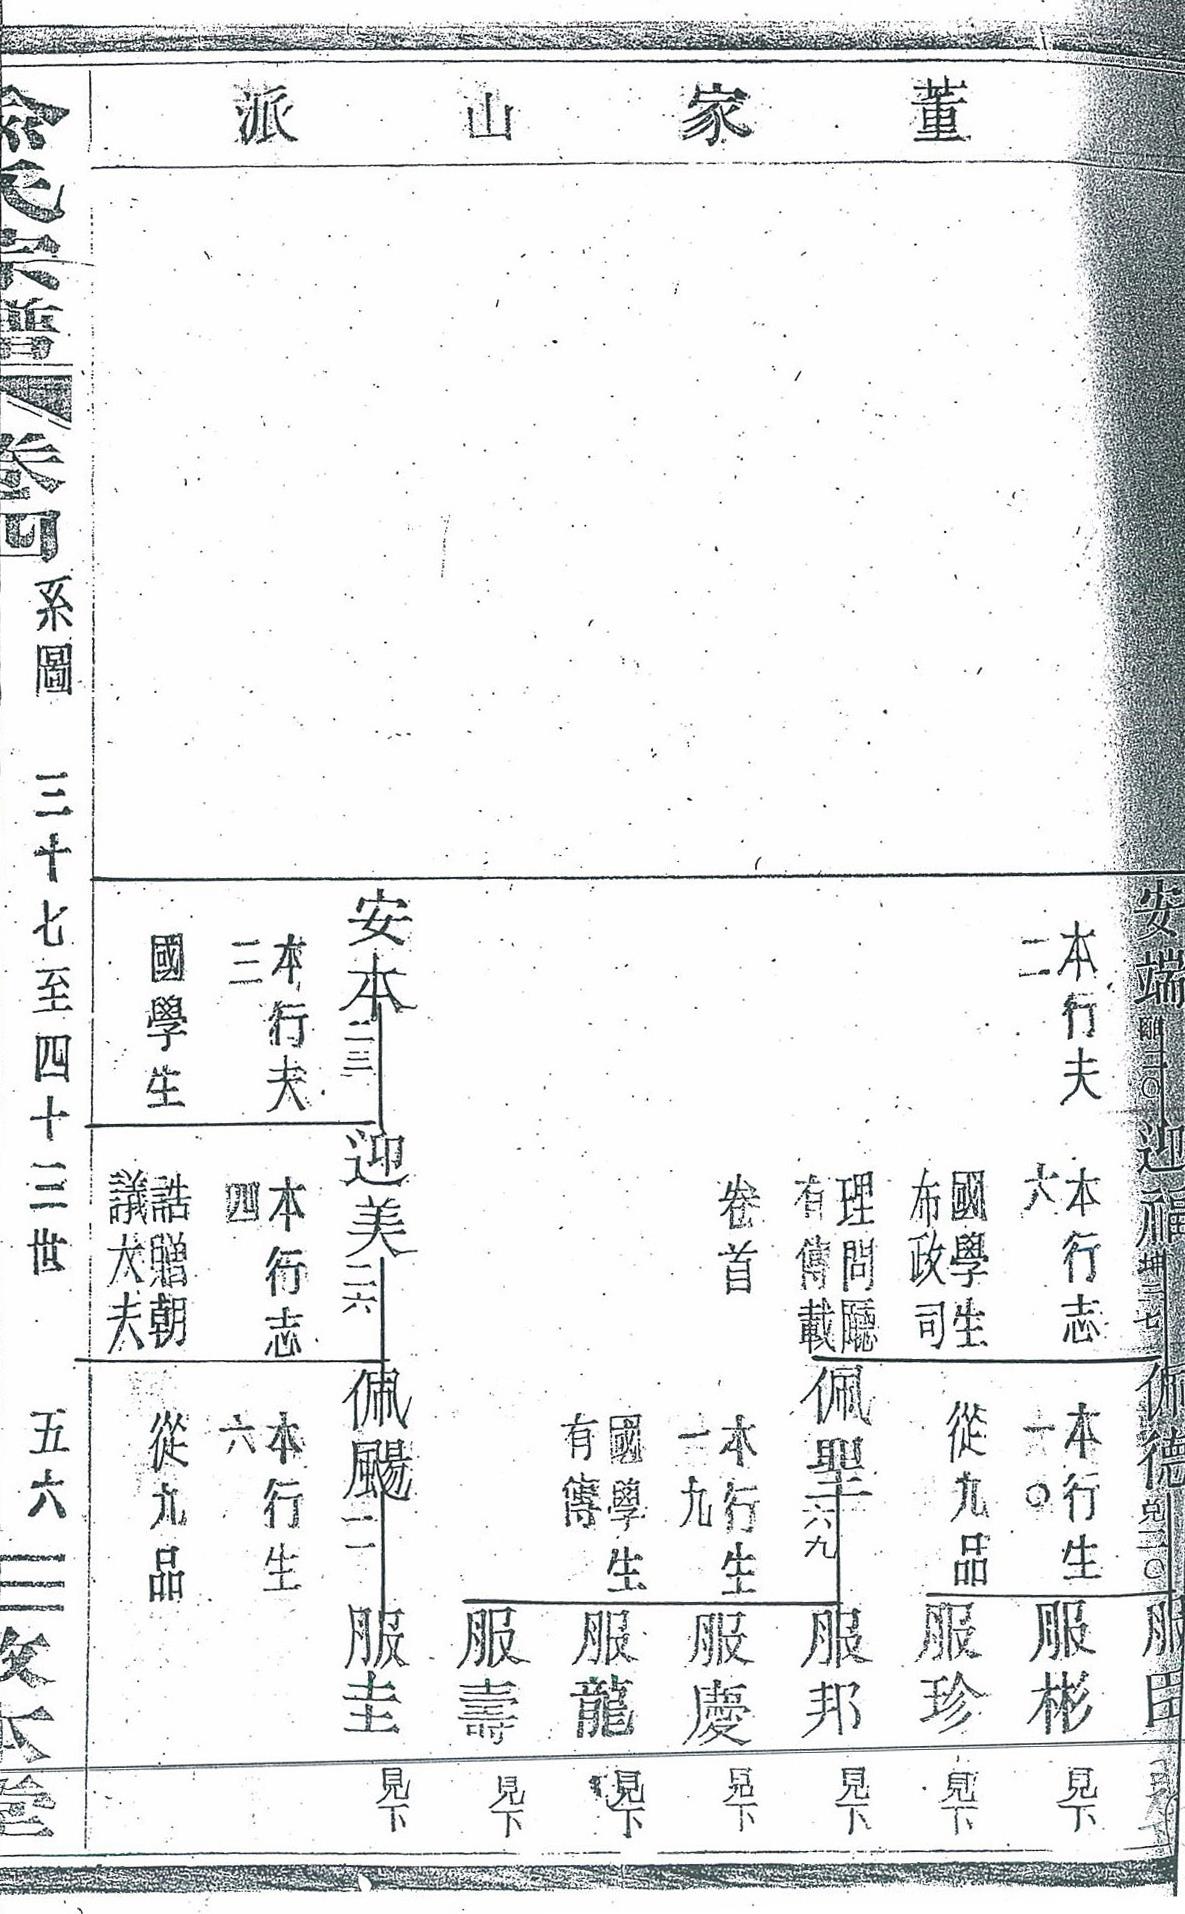 董家山派
安端
二〇
本行夫
二
迎福
二七
本行志
六
國學生
布政司
理問廳
有傳載
卷首
佩德
二〇
本行生
一〇
從九品
佩聖
六九
本行生
一九
國學生
有傳
服
服彬
見下
服珍
見下
服邦
見下
服慶
見下
服龍
見下
服壽
見下
安本
二三
本行夫
三
國學生
迎美
二六
本行志
四
誥贈朝
議大夫
佩颺
二一
本行生
六
從九品
服圭
見下
俞氏宗譜
卷四
系圖
三十七至四十三世
五六
三
敦本堂